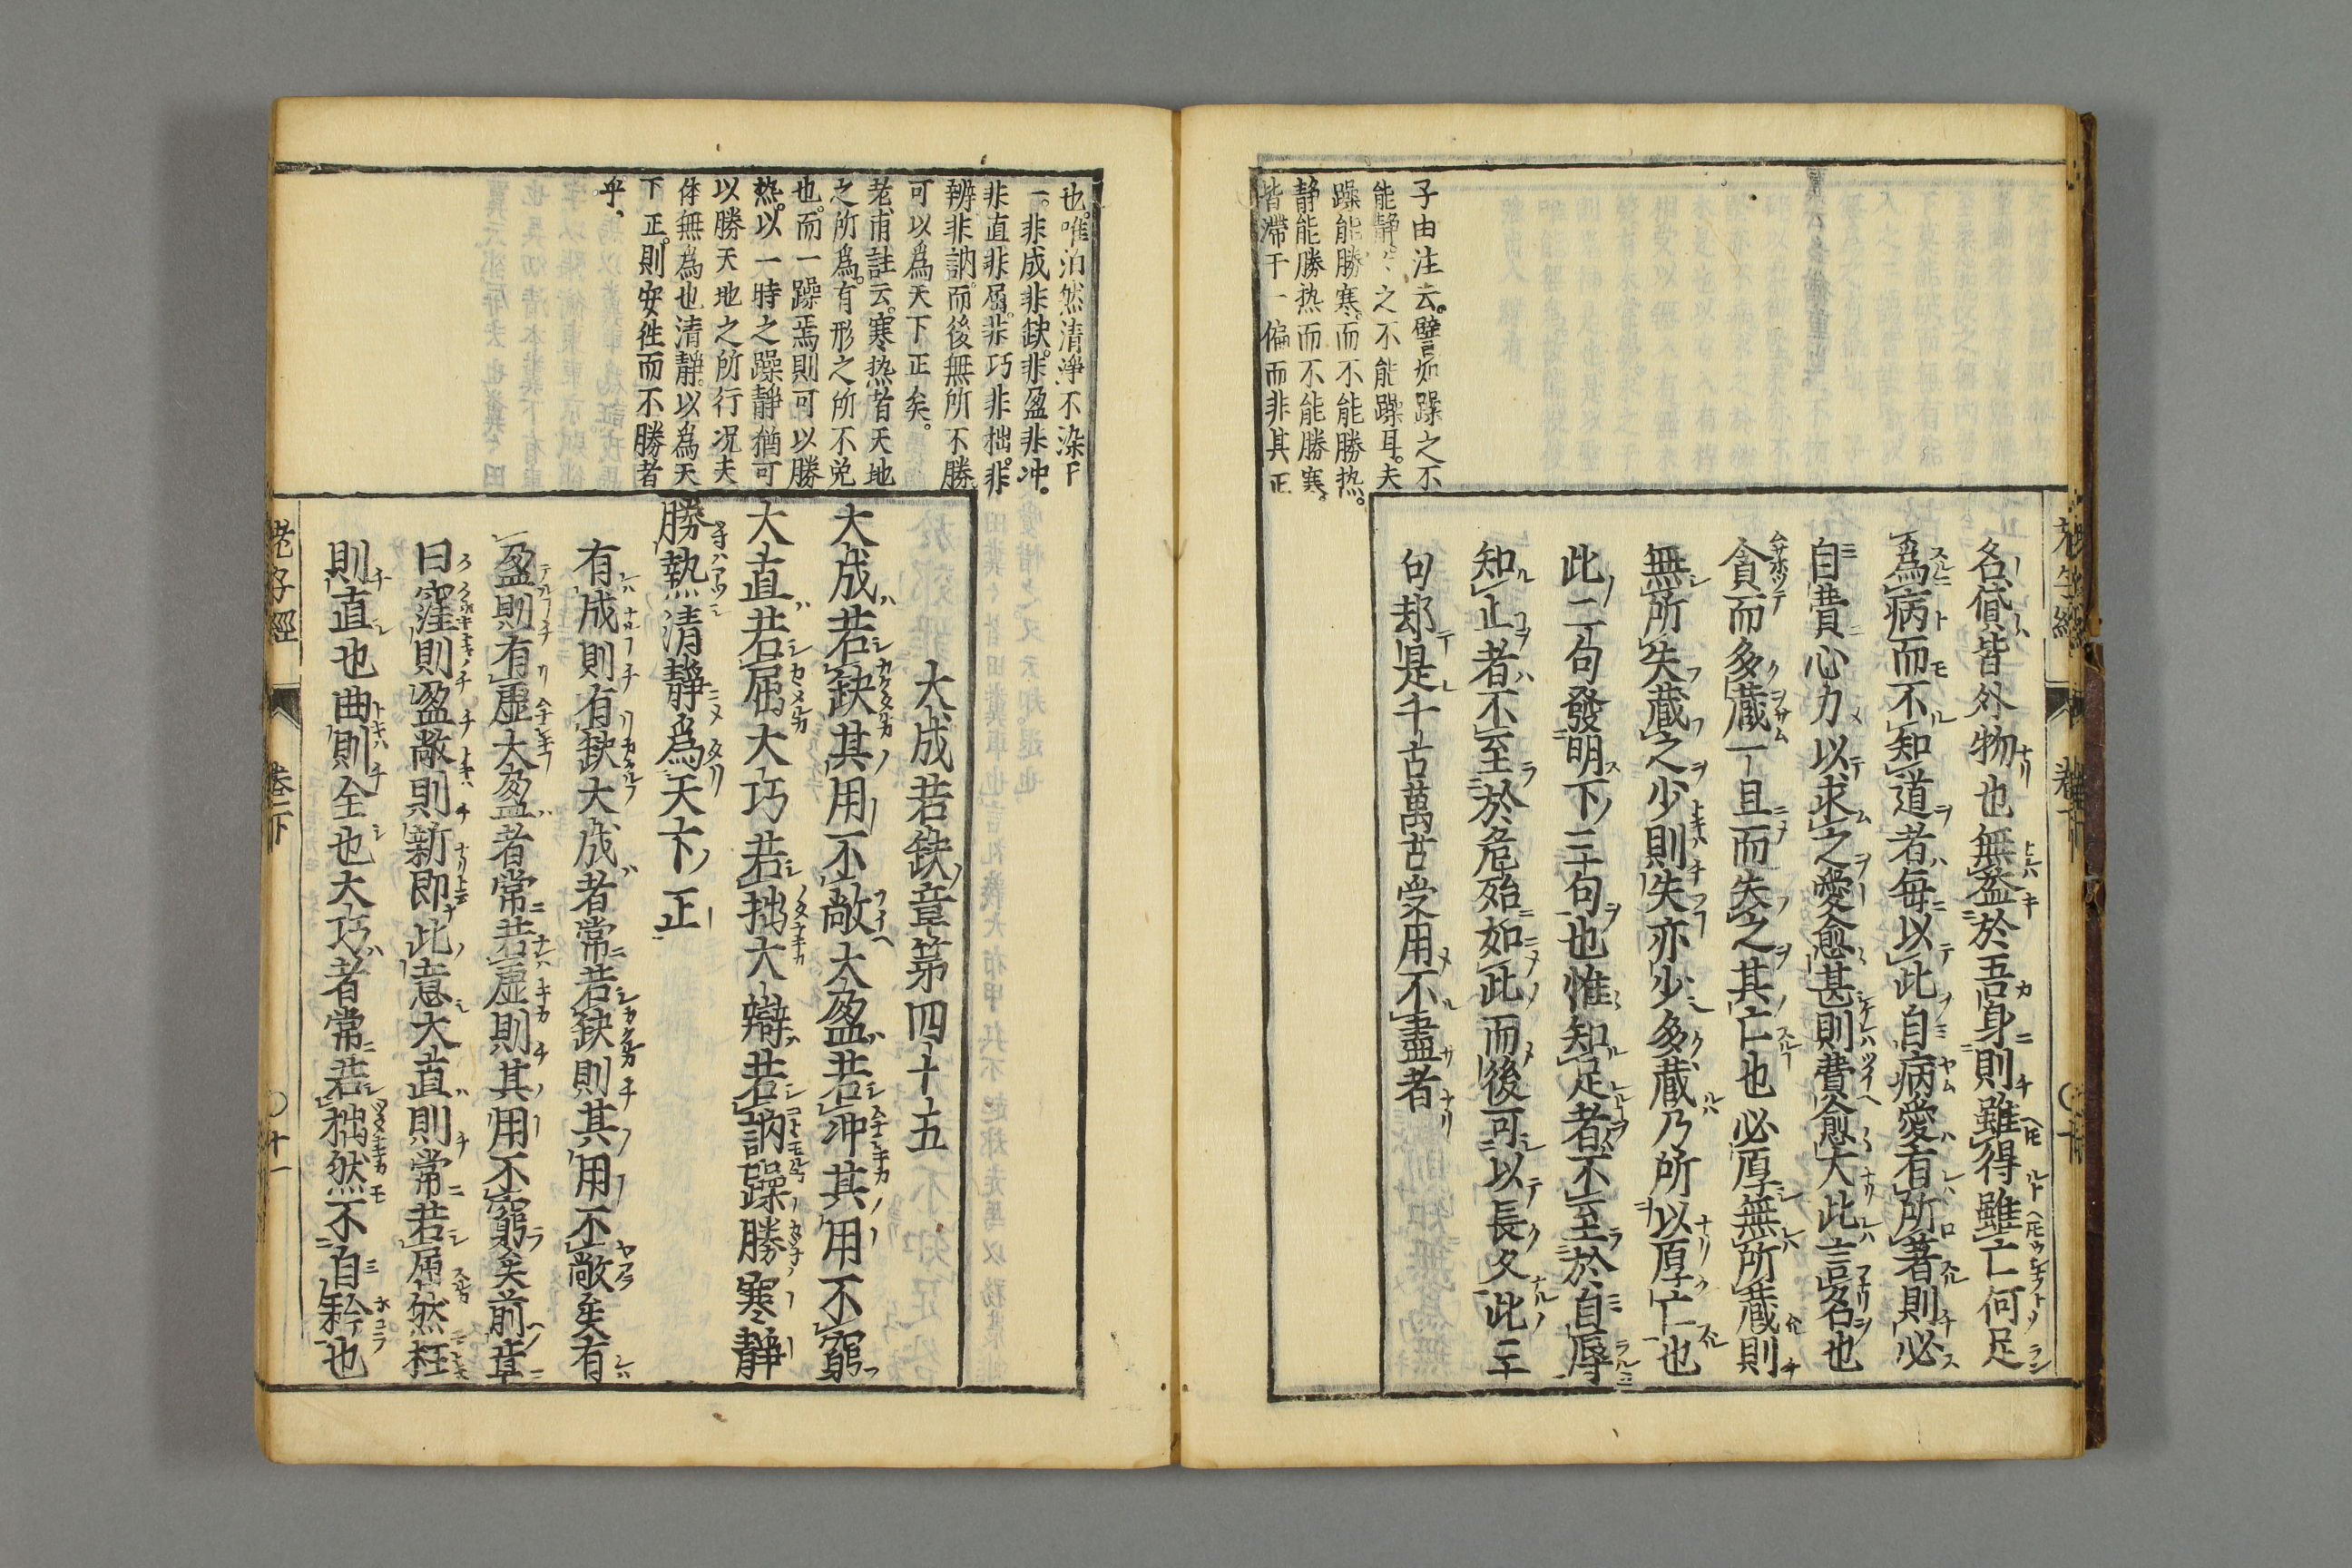 老子經
卷下
子由注云。譬如躁之不
能靜。〻之不能躁耳。夫
躁能勝寒。而不能勝热。
靜能勝热而不能勝寒。
皆滞干一偏而非其正
名貨皆外物也無益於吾身則雖得雖亡何足
為病而不知道者每以此自病愛有所著則必
自費心力以求之愛愈甚則費愈大此言名也
貪而多藏一旦而失之其亡也必厚無所藏則
無所失藏之少則失亦少多藏乃所以厚亡也
此二句發明下三句也惟知足者不至於自辱
知止者不至於危殆如此而後可以長久此三
句却是千古萬古受用不盡者
也。唯泊然清淨不染下
一。非成非缺。非盈非冲。
非直非屈。非巧非拙。非
辨非訥。而後無所不勝
可以為天下正矣。
老甫註云。寒热者天地
之所為。有形之所不免
也。而一躁焉則可以勝
热。以一時之躁靜猶可
以勝天地之所行况夫
体無為也清靜。以為天
下正。則安徃而不勝者
乎、
大成若缺章第四十五
大成若缺其用不敝大盈若冲其用不窮
大直若屈大巧若拙大辯若訥躁勝寒靜
勝熱清靜為天下正
有成則有缺大成者常若缺則其用不敝矣有
盈則有虛大盈者常若虛則其用不窮矣前章
曰窪則盈敝則新即此意大直則常若屈然枉
則直也曲則全也大巧者常若拙然不自矜也
老子經
卷下
○十一